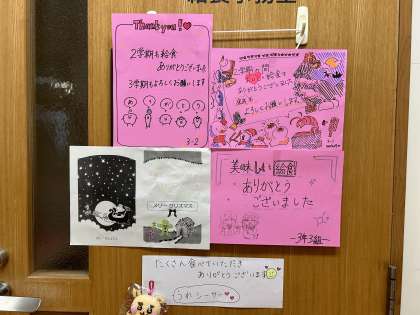 Thank you!
2学期も給食
ありがとうございました
3学期もよろしくお願いします
ありがとう
3-2
2学期の間
給食を
ありがとうございました
よろしくお願いします。
メリークリスマス
美味しい給食
ありがとう
ございました
-3年3組-
たくさん食べていただき
ありがとうございます
うれシーサー